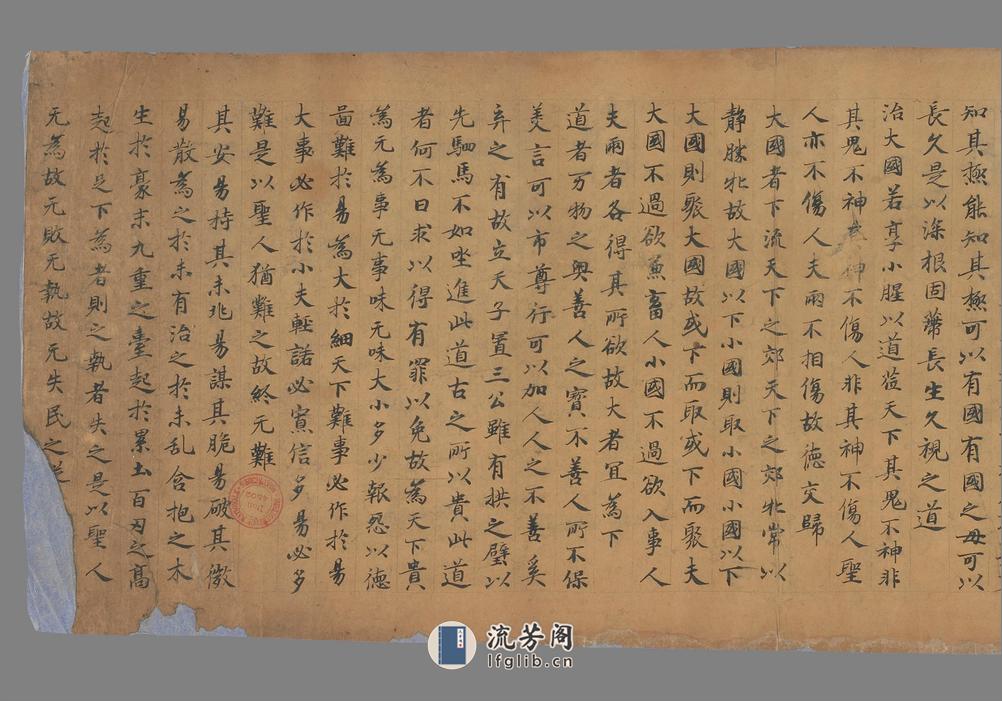 知其極能知其極可以有國有國之母可以
長久是以深根固蔕長生久視之道
治大國若享小腥以道莅天下其鬼不神非
其鬼不神其神不傷人非其神不傷人聖
人亦不傷人夫兩不相傷故德交歸
大國者下流天下之郊天下之郊牝常以
靜勝牝故大國以下小國則取小國小國以下
大國則聚大國故或下而取或下而聚夫
大國不過欲兼畜人小國不過欲入事人
夫兩者各得其所欲故大者冝為下
道者万物之奧善人之寳不善人所不保
美言可以市尊行可以加人人之不善奚
弃之有故立天子置三公雖有拱之璧以
先駟馬不如坐進此道古之所以貴此道
者何不日求以得有罪以免故為天下貴
為无為事无事味无味大小多少報怨以德
啚難於易為大於細天下難事必作於易
大事必作於小夫輕諾必寡信多易必多
難是以聖人猶難之故終无難
其安易持其未兆易謀其脆易破其微
易散為之於未有治之於未乱含抱之木
生於豪末九重之臺起於累土百刃之髙
起於足下為者則之執者失之是以聖人
无為故无敗无執故无失民之從
流芳阁
lfglib.cn